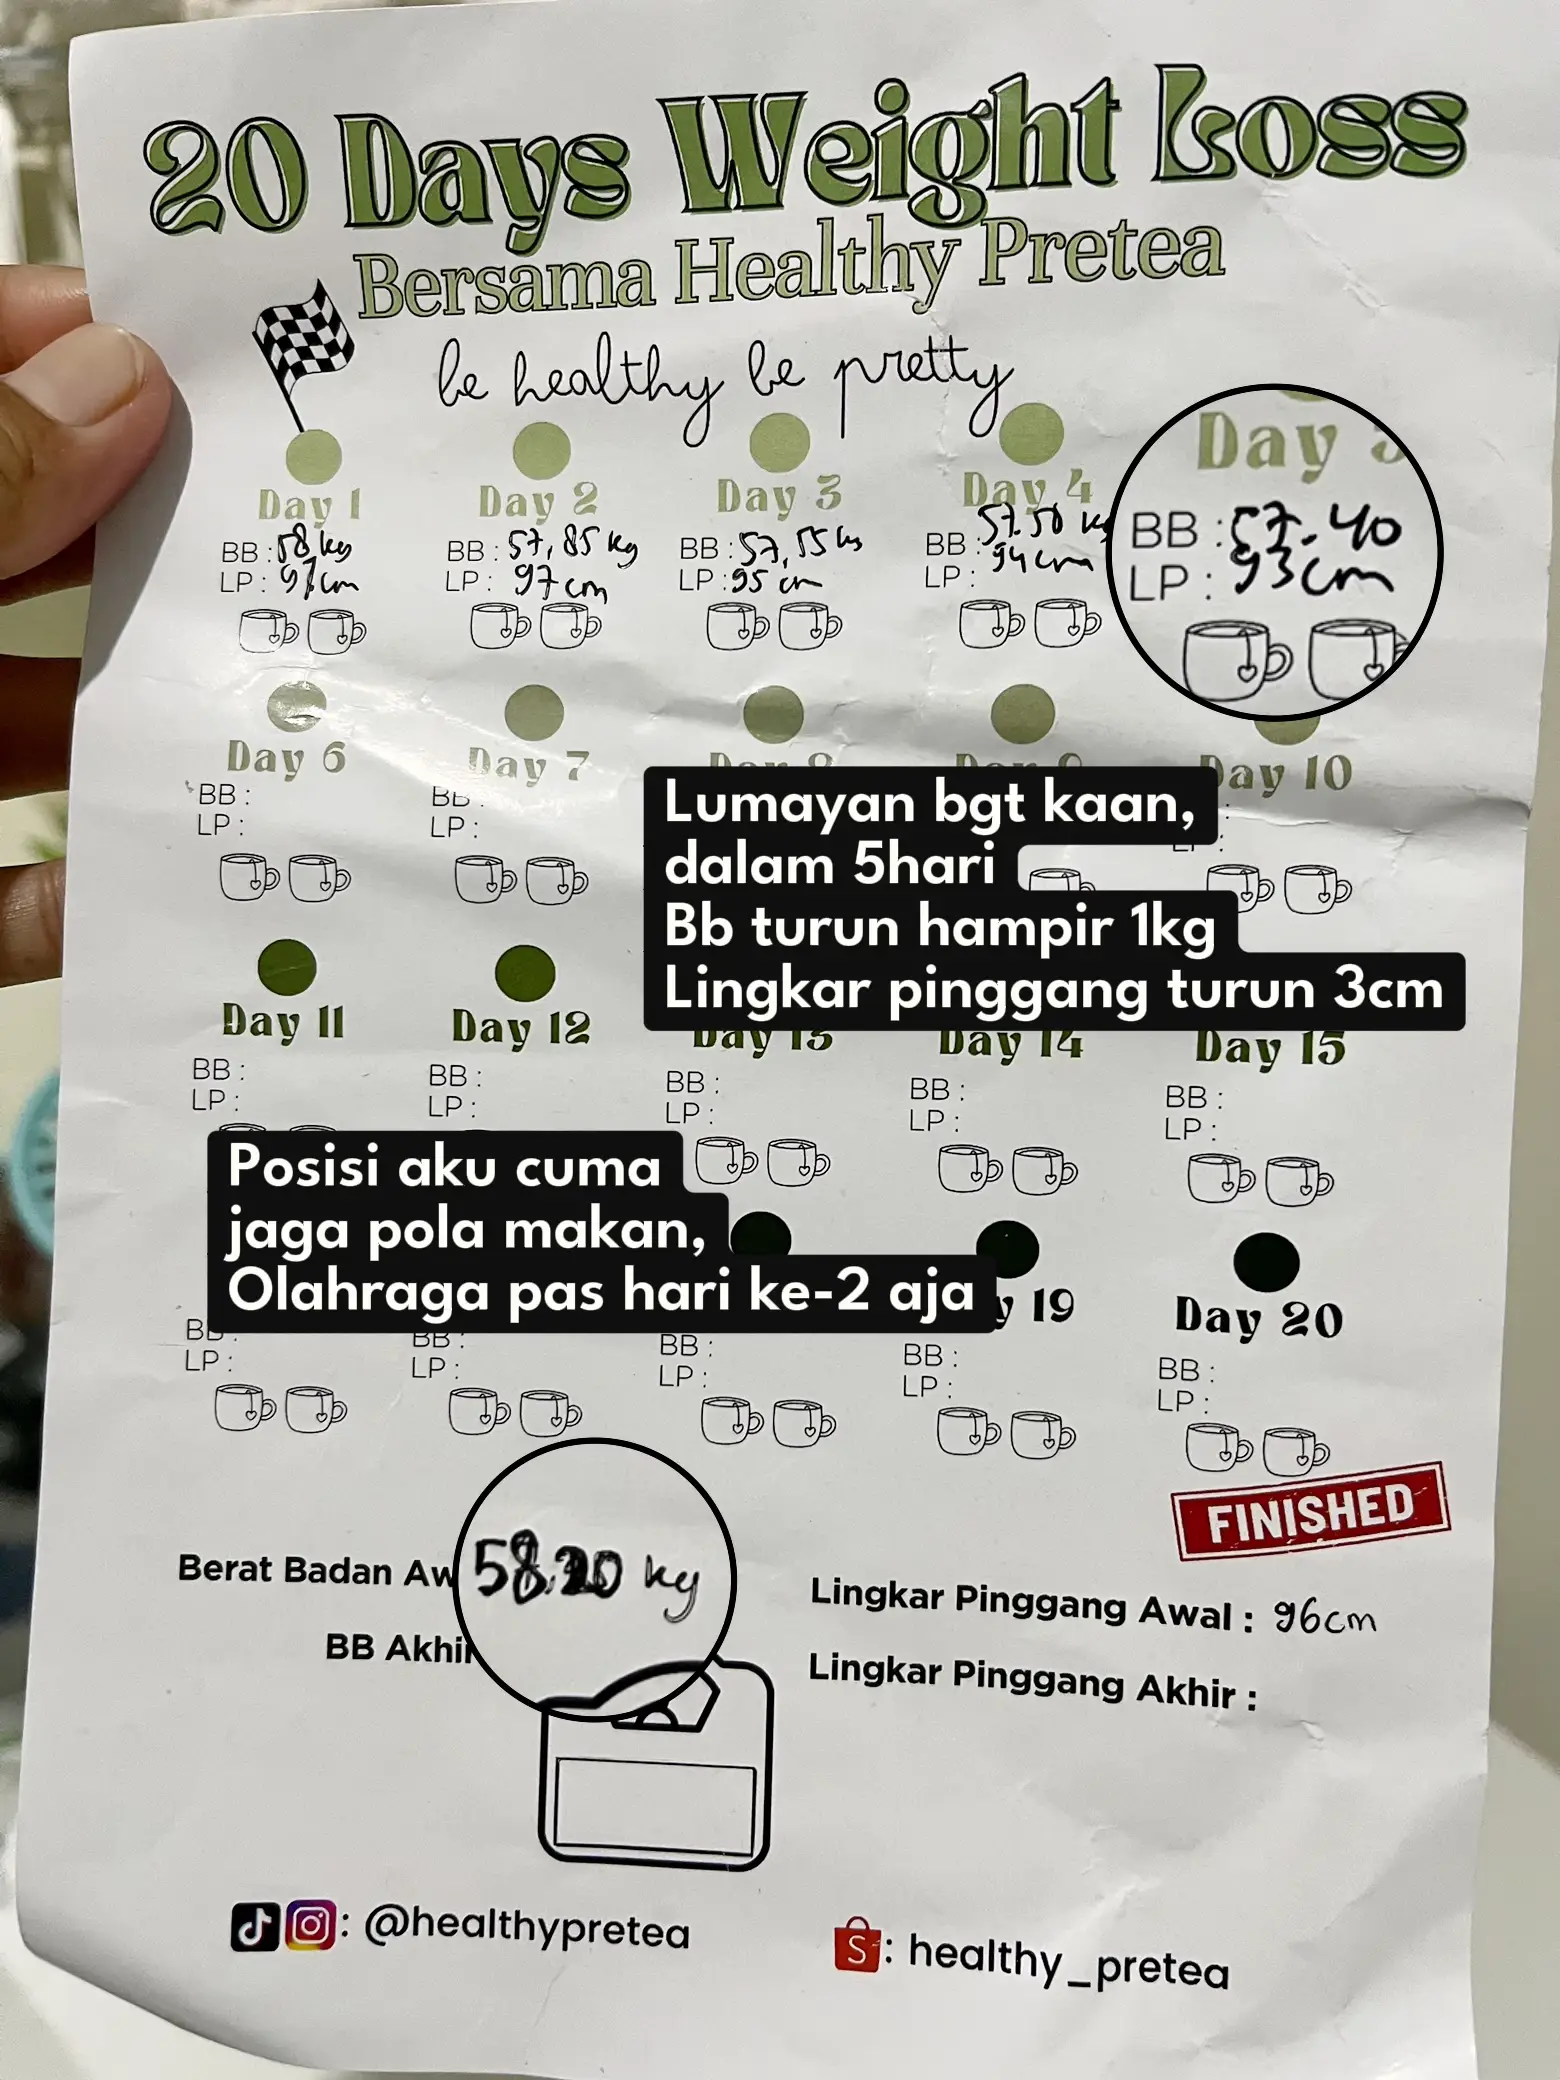 20 Days Weight Loss
Bersama Healthy Pretea
be healthy be pretty
Day 1
BB : 58 kg
LP : 97cm
Day 2
BB : 57,85 kg
LP : 97cm
Day 3
BB : 57,55 kg
LP : 95 cm
Day 4
BB : 57.50 kg
LP : 94cm
Day
BB : 57.40
LP : 93cm
Day 6
BB :
LP :
Day 7
BB :
LP :
Day 8
Day 9
Day 10
LP :
Lumayan bgt kaan,
dalam 5hari
Bb turun hampir 1kg
Lingkar pinggang turun 3cm
Day 11
BB :
LP :
Day 12
BB :
LP :
Day 13
BB :
LP :
Day 14
BB :
LP :
Day 15
BB :
LP :
Posisi aku cuma
jaga pola makan,
Olahraga pas hari ke-2 aja
BB :
LP :
BB :
LP :
BB :
LP :
y 19
BB :
LP :
Day 20
BB :
LP :
FINISHED
Berat Badan Aw 58.20 kg
BB Akhir
Lingkar Pinggang Awal : 96cm
Lingkar Pinggang Akhir :
: @healthypretea
S : healthy_pretea